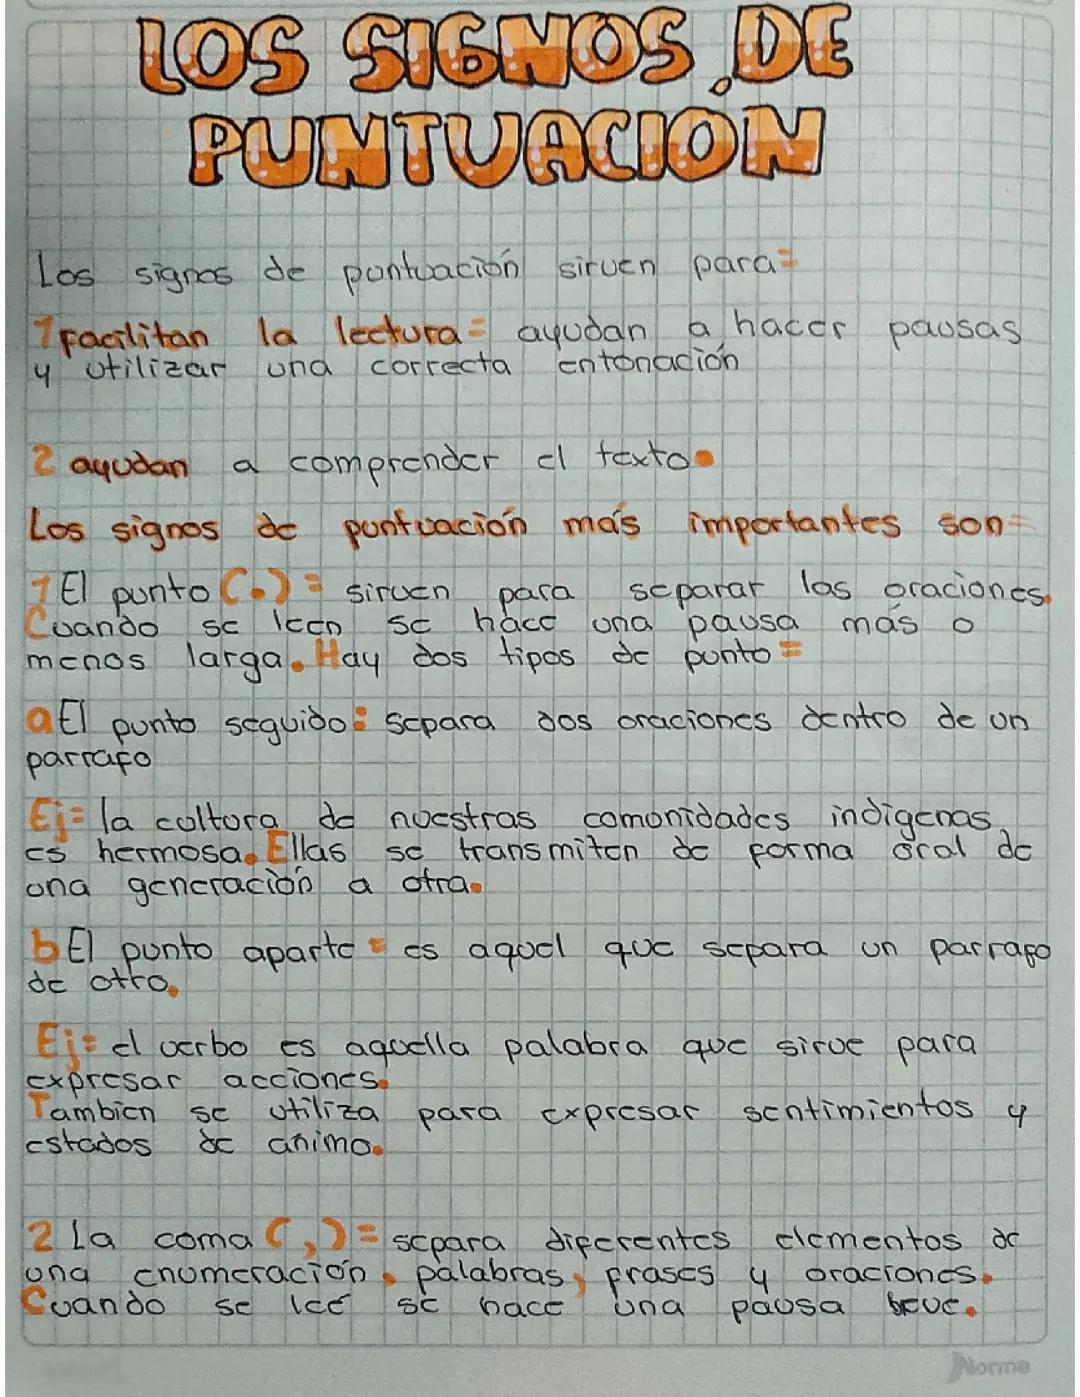 LOS SIGNOS DE
PUNTUACIÓN
Los signos de puntuación sirven para=
1 facilitan la lectura= ayudan a hacer pausas
y utilizar una correcta entonación
2 ayudan a comprender el texto.
Los signos de puntuación más importantes son=
1 El punto (.) = sirven para separar las oraciones.
Cuando se leen se hace una pausa más o
menos larga. Hay dos tipos de punto=
a El punto seguido: separa dos oraciones dentro de un
parrafo
Ej= la cultura de nuestras comunidades indigenas
es hermosa. Ellas se transmiten de forma oral de
una generación a otra.
b El punto aparte= es aquel que separa un parrafo
de otro.
Ej= el verbo es aquella palabra que sirve para
expresar acciones.
Tambien se utiliza para expresar sentimientos y
estados de animo.
2 La coma (,)= separa diferentes elementos de
una enumeración, palabras, frases y oraciones.
Cuando se lee se hace una pausa breve.
Norma